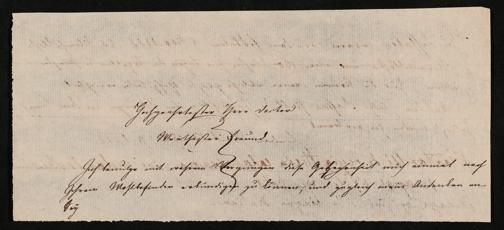 Hochgeehrtester Herr Doctor
Werthester Freund.
Ich benutze mit wahrem Vergnügen diese Gelegenheit mich einmal nach
Ihrem Wohlbefinden erkundigen zu können, und zugleich mein Andenken